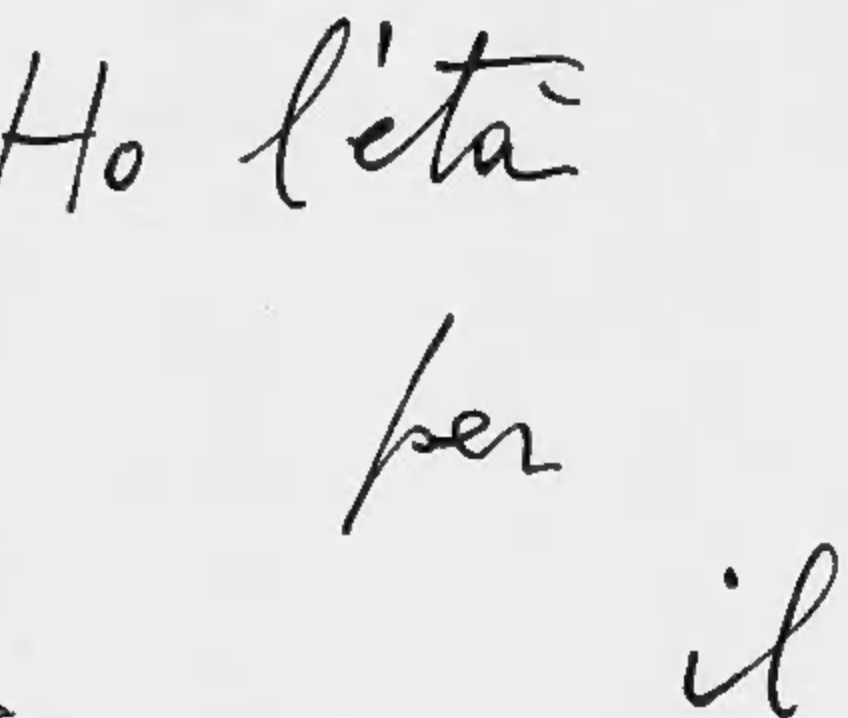 Ho l'età
per
il